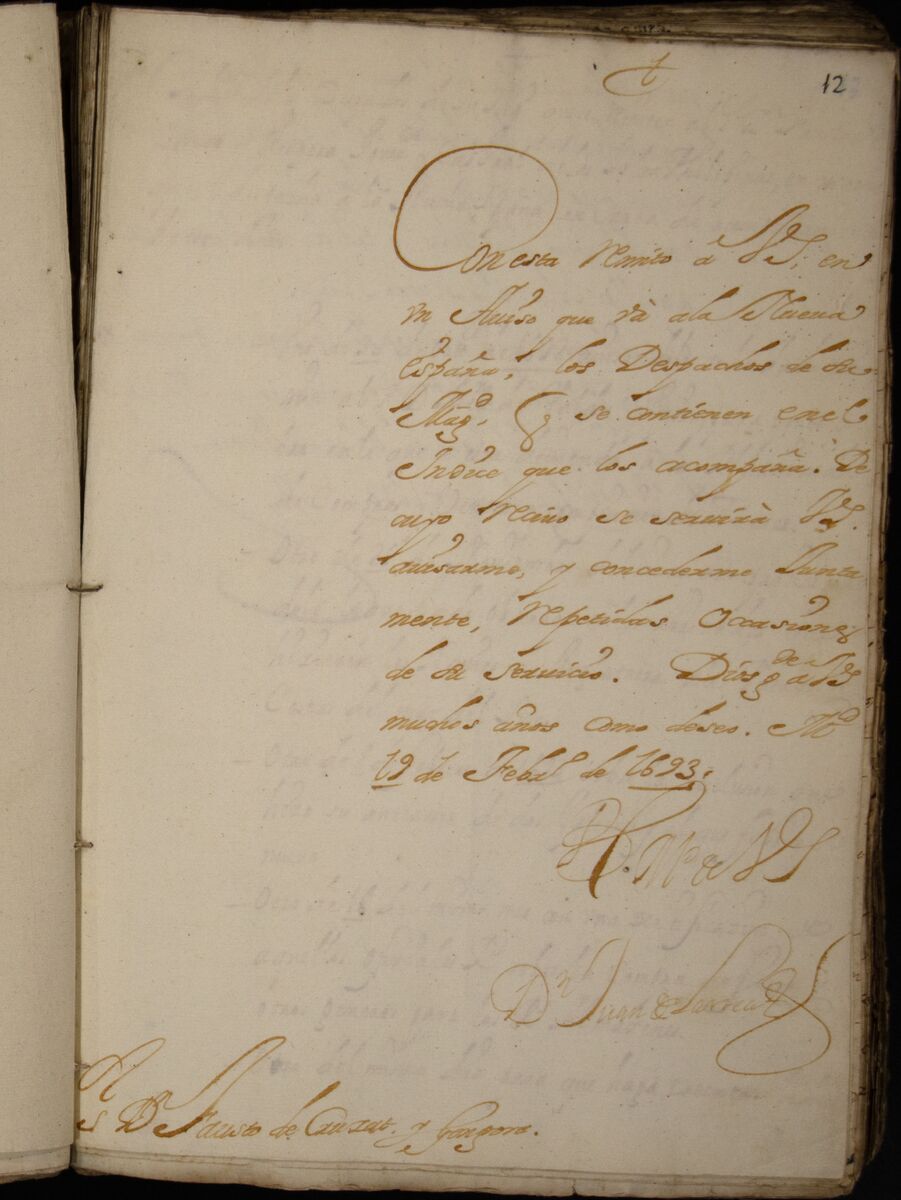 12
Con esta remito â VS, en
vn Auiso que và ala Nueua
España, los Despachos de su
Magd, q se contienen en el
Indice que los acompaña. De
cuyo reciuo se seruirà VS.
auisarme, y concederme Junta
mente, repetidas ocasiones
de su seruicio. Dios gde a VS
muchos años como deseo. Md
19 de Febro de 1693.
Dn Juan de Larrea
Sr Dn Fausto de Cruzat y Gongora.